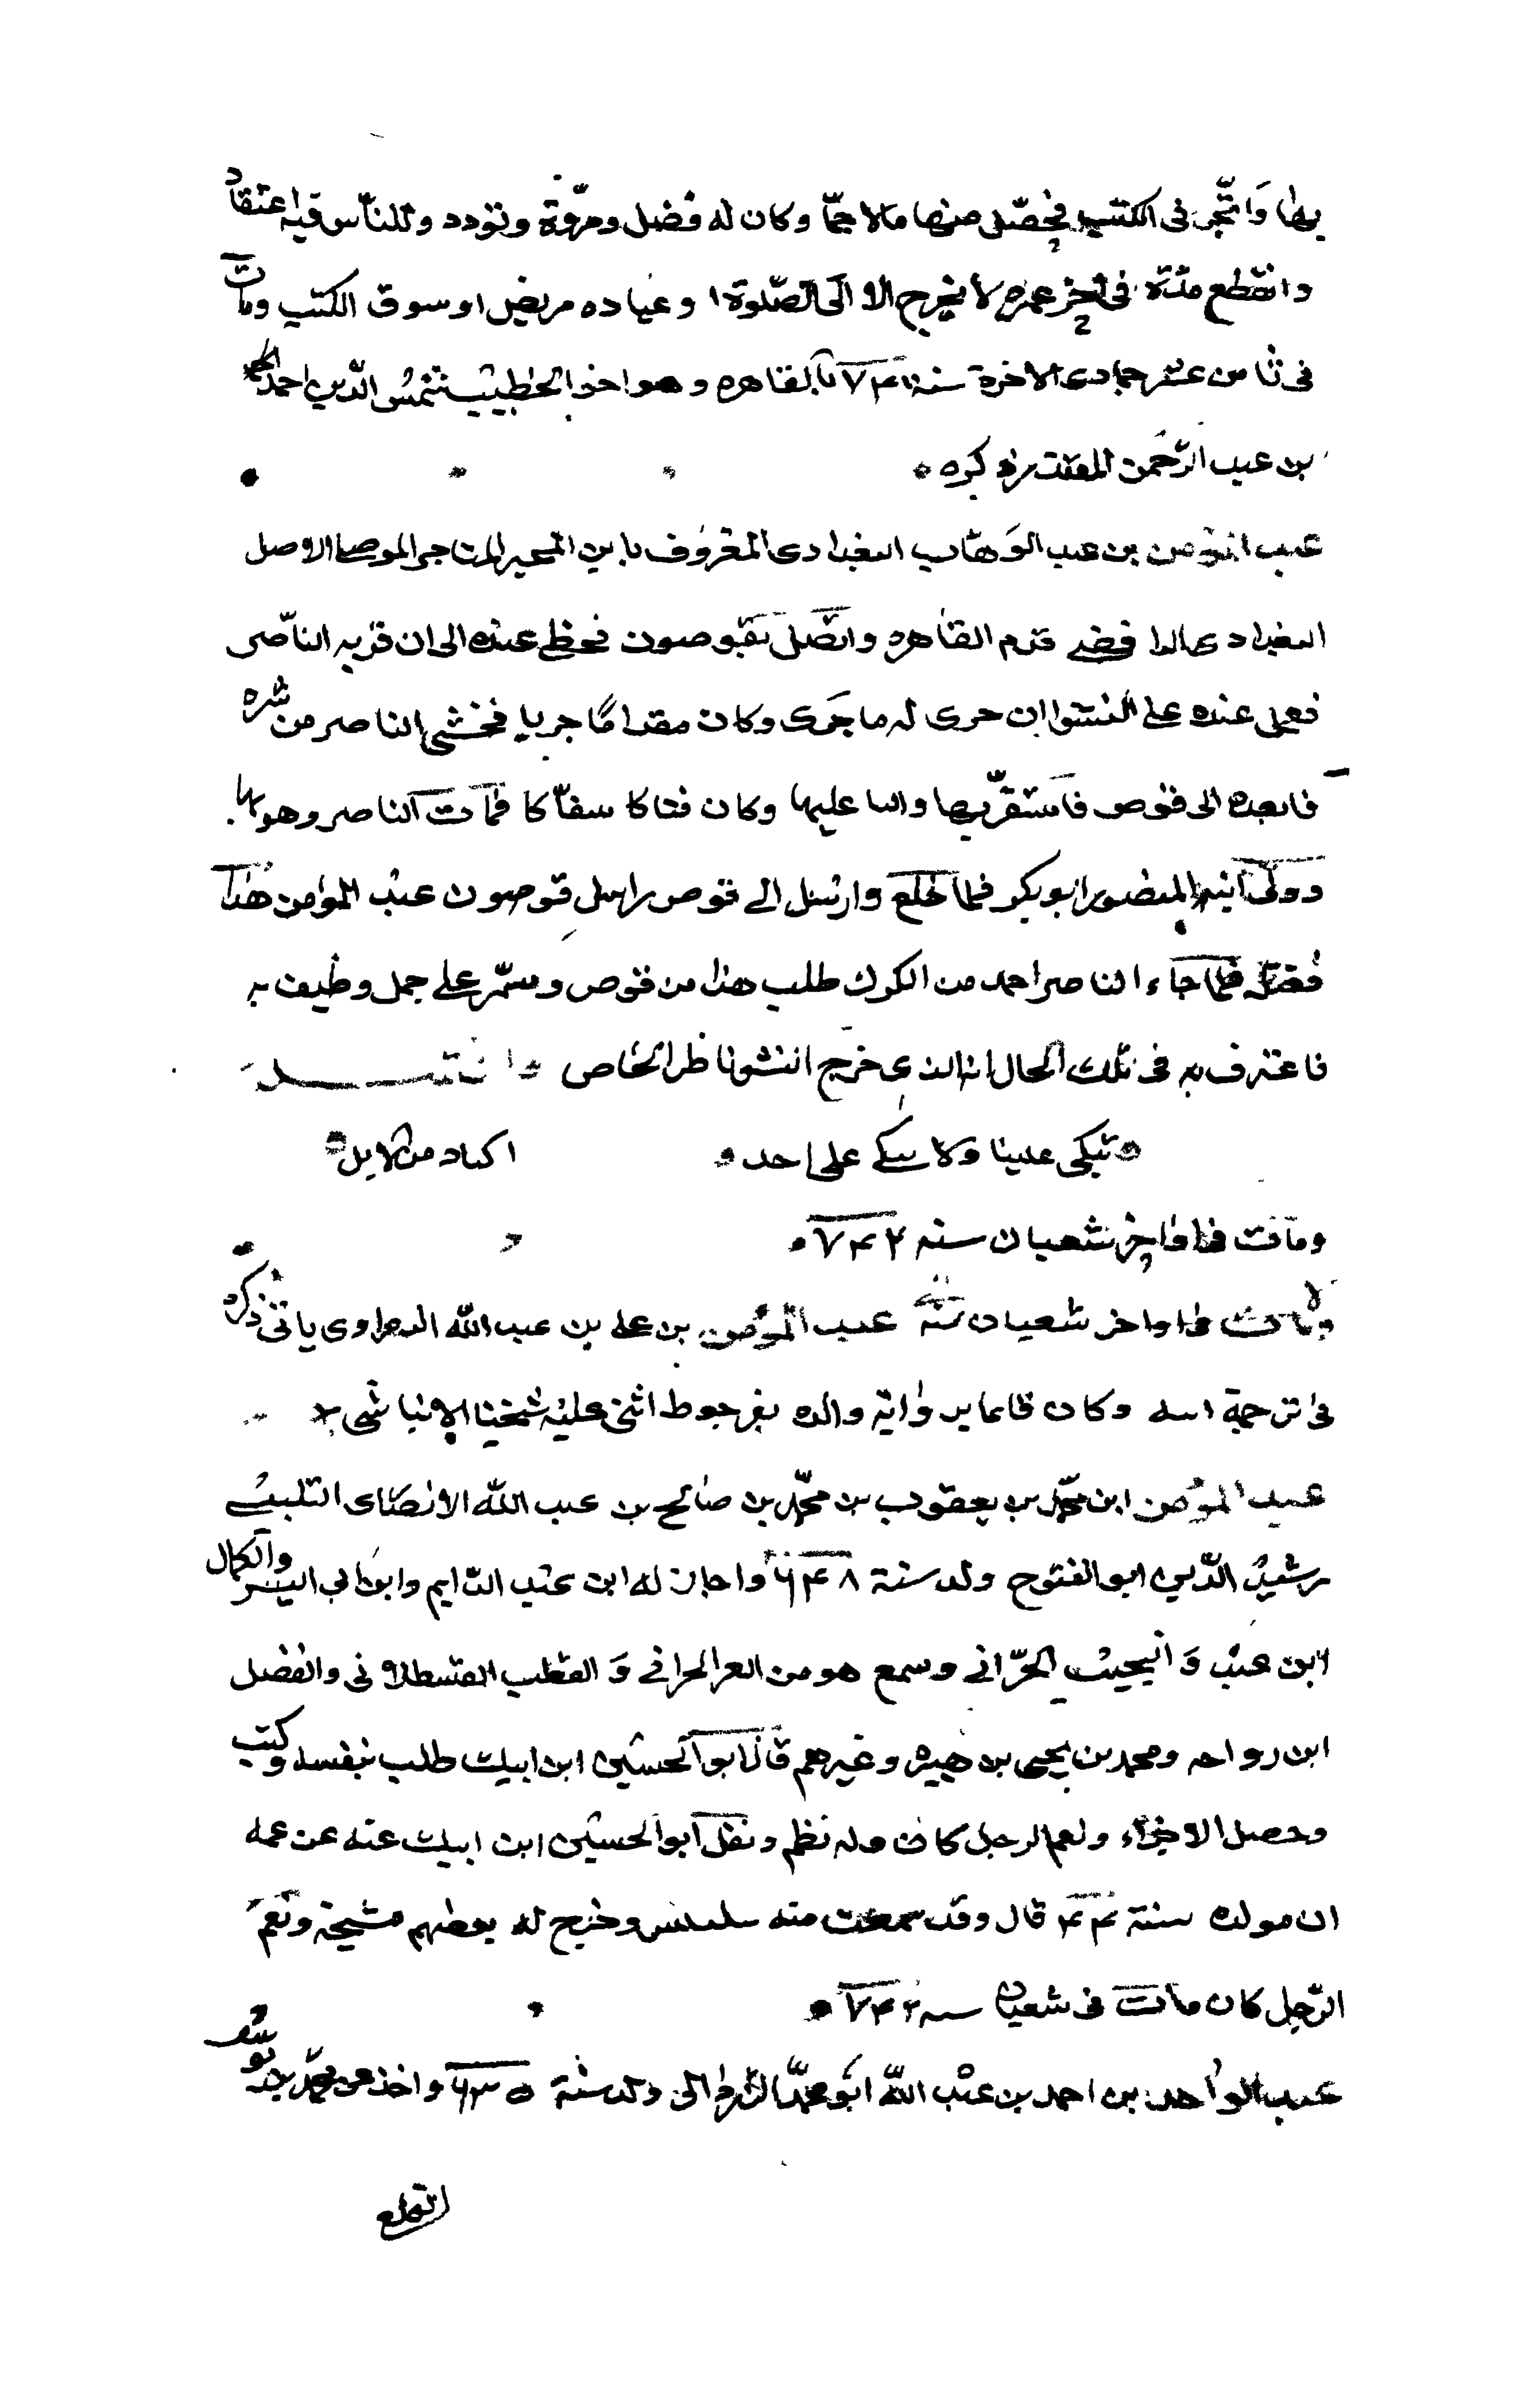 بها واتّجر فى الكتب فحصّل منها مالا جمّا وكان له فضل ومروّة وتودد وللنّاس فيه اعتقاد
وانقطع مدّة فى اخر عمره لا يخرج الا الى الصّلوة ا وعياده مريض او سوق الكتب ومات
فى ثامن عشر جمادى الاخرة سنة بالقاهره وهو اخو الخطيب شمس الدّين احمد
بن عبد الرّحمن المقدم ذكره
عبد المؤمن بن عبد الوهّاب البغدادى المعروف بابن المجير التاجر الموصلى الاصل
البغدادى قدم القاهره واتّصل بقوصون فحظى عنده الى ان قربه النّاصر
فعمل عنده على النشو الى ان جرى له ما جرى وكان مقداما جريا فخشى الناصر من شره
فابعده الى قوص فاستقرّ بها واليا عليها وكان فتاكا سفّاكا فمات الناصر وهو بها
وولى ابنه المنصور ابو بكر فلما خلع وارسل الى قوص راسل قوصون عبد المؤمن هذا
فقتله فلما جاء الناصر احمد من الكرك طلب هذا من قوص وسمّر على جمل وطيف به
فاعترف به فى تلك الحال انه الذى خرج النشو ناظر الخاص وانشد
تبكى علينا ولا نبكى على احد اكباد من الابل
ومات فى اواخر شعبان سنه ۷۴۲
ومات فى اواخر شعبان سنة عبد المؤمن بن على بن عبد الله ياتى ذكره
فى ترجمة ابنه وكان قائما برواية والده بفرجوط اثنى عليه شيخنا الابناسى
عبد المؤمن ابن محمّد بن يعقوب بن محمّد بن صالح بن عبد الله الانصارى
رشيد الدّين ابو الفتوح ولد سنة ۶۴۸ واجاز له ابن عبد الدايم وابن ابى اليسر والكمال
ابن عبد والنجيب الحرّانى وسمع هو من العز الحرانى والقطب القسطلانى والفضل
ابن رواحه ومحمد بن يحيى بن وغيرهم قال ابو الحسين ابن ايبك طلب بنفسه وكتب
وحصل الاجزاء ونعم الرجل كان وله نظم ونقل ابو الحسين ابن ايبك عنه عن عمه
ان مولده سنة ۴۴ قال وقد سمعت منه وخرج له بعضهم مشيخة ونعم
الرّجل كان مات فى شعبان سنه ۷۴۲
عبد الواحد بن احمد بن عبد الله ابو محمّد ولد سنة ۶۳۵ واخذ عن محمّد بن يوسف